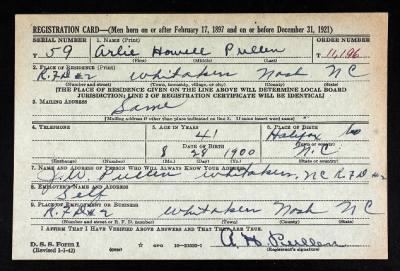 REGISTRATION CARD—(Men born on or after February 17, 1897 and on or before December 31, 1921)
SERIAL NUMBER 1. NAME (Print) ORDER NUMBER
T 59 Arlie Howell Pullen T 11,196
(First) (Middle) (Last)
2. PLACE OF RESIDENCE (Print)
R.F.D #2 Whitakers Nash N C
(Number and street) (Town, township, village, or city) (County) (State)
[THE PLACE OF RESIDENCE GIVEN ON THE LINE ABOVE WILL DETERMINE LOCAL BOARD
JURISDICTION; LINE 2 OF REGISTRATION CERTIFICATE WILL BE IDENTICAL]
3. MAILING ADDRESS
Same
[Mailing address if other than place indicated on line 2. If same insert word same]
4. TELEPHONE 5. AGE IN YEARS 6. PLACE OF BIRTH
41 Halifax Co
DATE OF BIRTH
8 28 1900 N.C.
7. NAME AND ADDRESS OF PERSON WHO WILL ALWAYS KNOW YOUR ADDRESS
J.W. Pullen Whitakers, NC R.F.D #2
8. EMPLOYER'S NAME AND ADDRESS
Self
9. PLACE OF EMPLOYMENT OR BUSINESS
R.F.D #2 Whitakers Nash N C
(Number and street or R. F. D. number) (Town) (County) (State)
I AFFIRM THAT I HAVE VERIFIED ABOVE ANSWERS AND THAT THEY ARE TRUE.
D. S. S. Form 1
(Revised 1-1-42) GPO A. H. Pullen